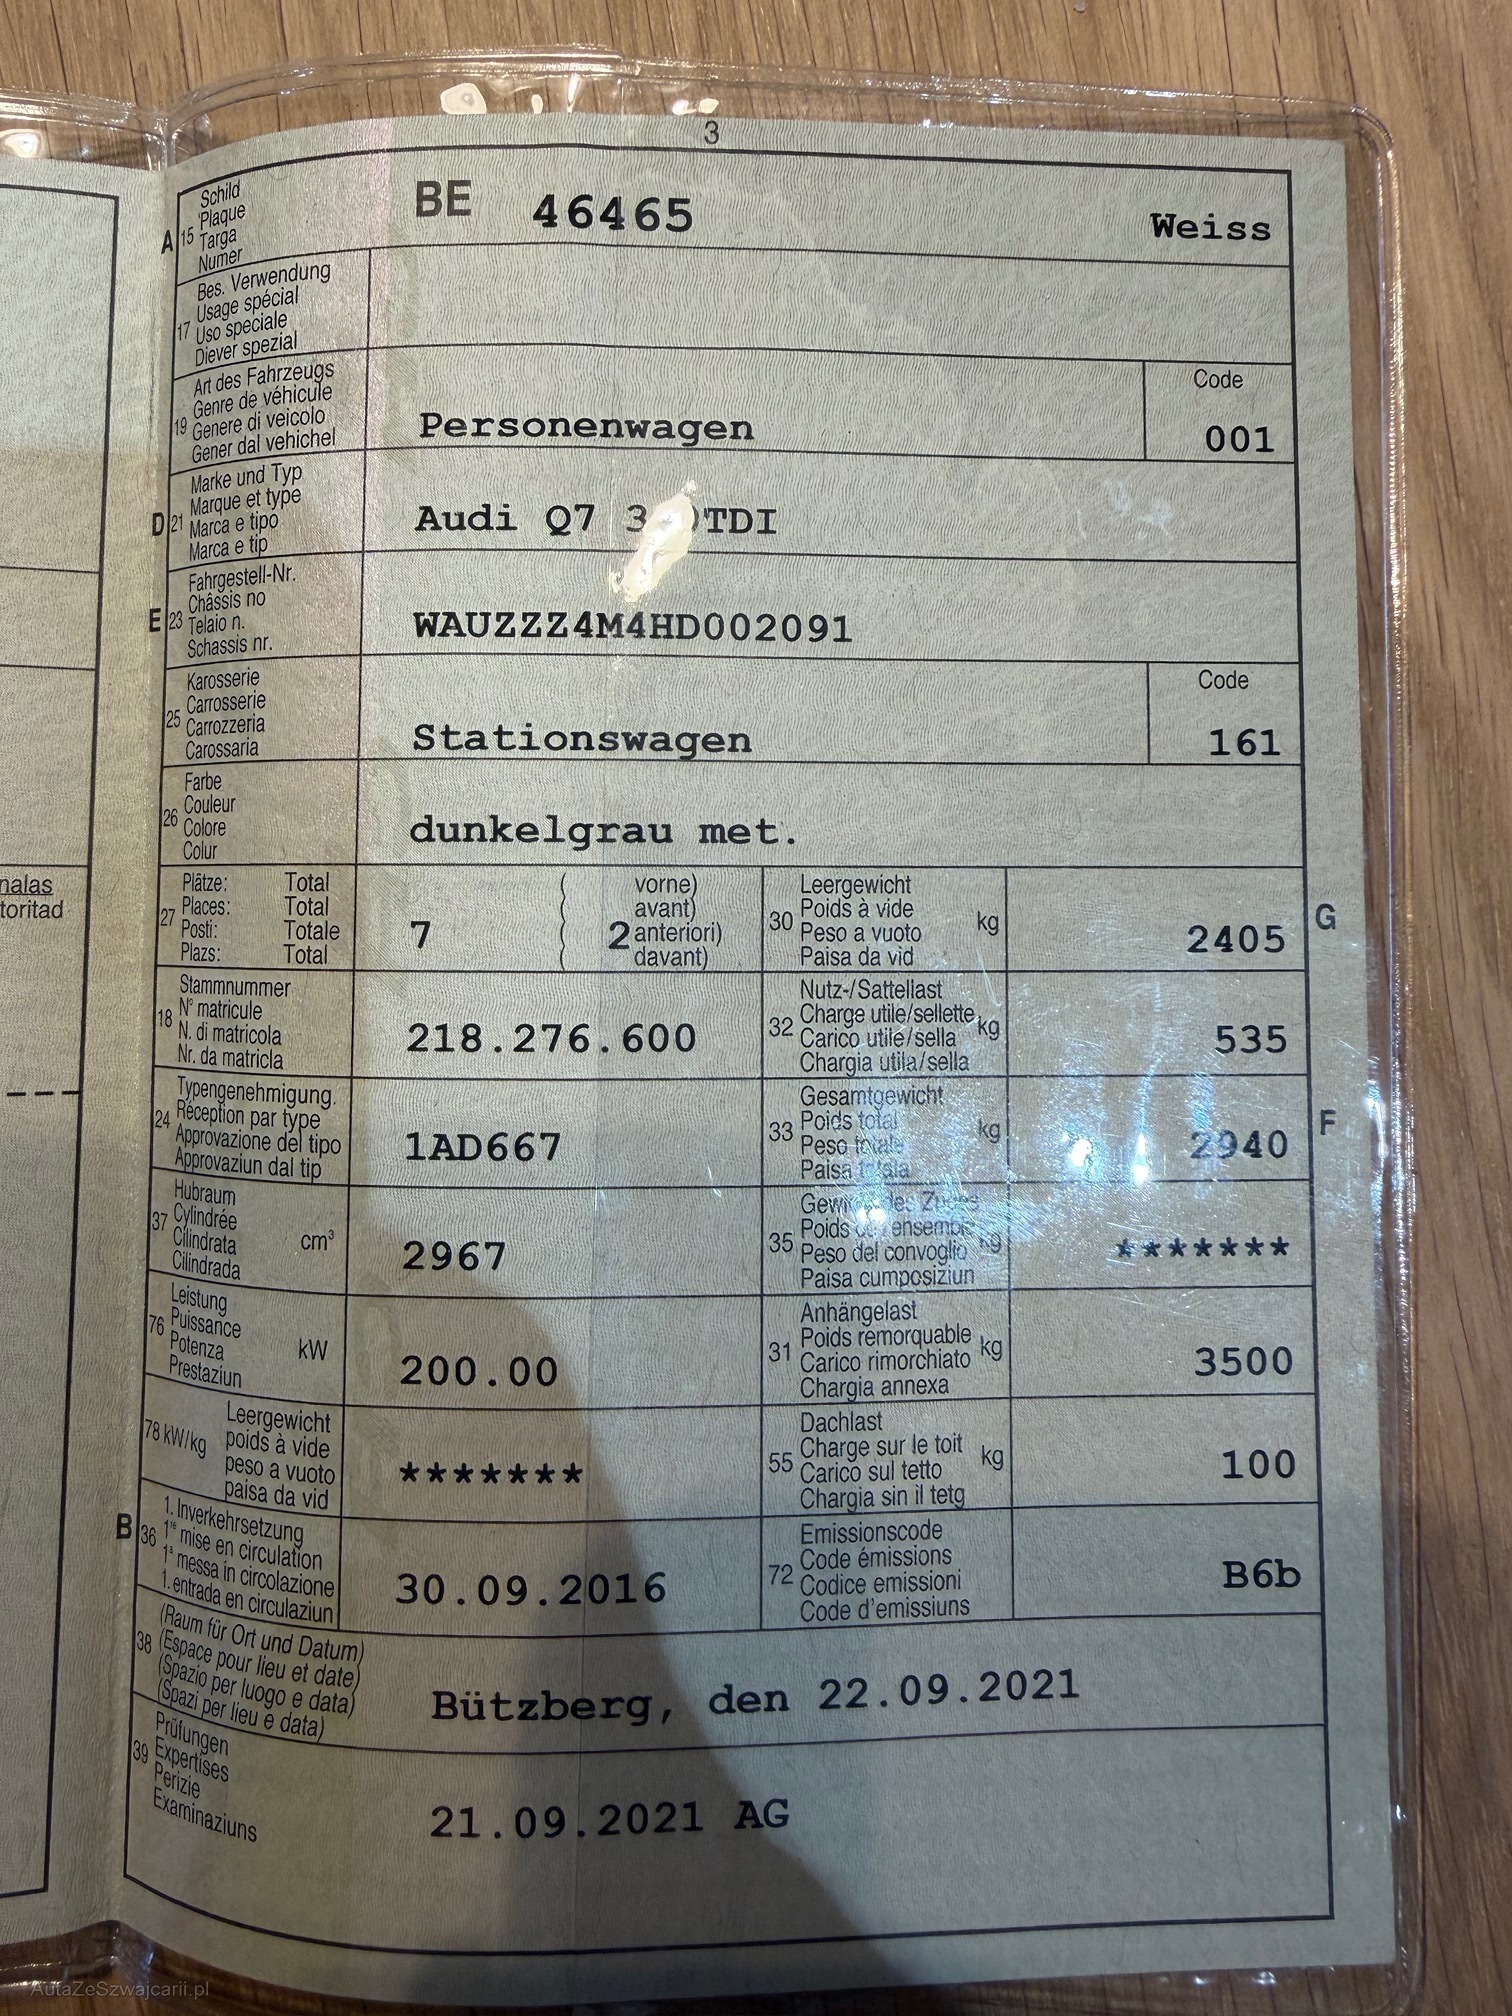 3
A 15 Schild
Plaque
Targa
Numer
BE 46465 Weiss
17 Bes. Verwendung
Usage spécial
Uso speciale
Diever spezial
19 Art des Fahrzeugs
Genre de véhicule
Genere di veicolo
Gener dal vehichel
Personenwagen
Code
001
D 21 Marke und Typ
Marque et type
Marca e tipo
Marca e tip
Audi Q7 TDI
E 23 Fahrgestell-Nr.
Châssis no
Telaio n.
Schassis nr.
WAUZZZ4M4HD002091
25 Karosserie
Carrosserie
Carrozzeria
Carossaria
Stationswagen
Code
161
26 Farbe
Couleur
Colore
Colur
dunkelgrau met.
27 Plätze: Total
Places: Total
Posti: Totale
Plazs: Total
7
( vorne)
( avant)
( 2 anteriori)
( davant)
30 Leergewicht
Poids à vide
Peso a vuoto
Paisa da vid
kg
2405
G
18 Stammnummer
N° matricule
N. di matricola
Nr. da matricla
218.276.600
32 Nutz-/Sattellast
Charge utile/sellette
Carico utile/sella
Chargia utila/sella
kg
535
24 Typengenehmigung.
Réception par type
Approvazione del tipo
Approvaziun dal tip
1AD667
33 Gesamtgewicht
Poids total
Peso totale
Paisa totala
kg
2940
F
37 Hubraum
Cylindrée
Cilindrata
Cilindrada
cm³
2967
35
Poids
Peso del convoglio
Paisa cumposiziun
kg
*******
76 Leistung
Puissance
Potenza
Prestaziun
kW
200.00
31 Anhängelast
Poids remorquable
Carico rimorchiato
Chargia annexa
kg
3500
78 kW/kg Leergewicht
poids à vide
peso a vuoto
paisa da vid
*******
55 Dachlast
Charge sur le toit
Carico sul tetto
Chargia sin il tetg
kg
100
B 36 1. Inverkehrsetzung
1re mise en circulation
1a messa in circolazione
1. entrada en circulaziun
30.09.2016
72 Emissionscode
Code émissions
Codice emissioni
Code d'emissiuns
B6b
38 (Raum für Ort und Datum)
(Espace pour lieu et date)
(Spazio per luogo e data)
(Spazi per lieu e data)
Bützberg, den 22.09.2021
39 Prüfungen
Expertises
Perizie
Examinaziuns
21.09.2021 AG
nalas
toritad
AutaZeSzwajcarii.pl